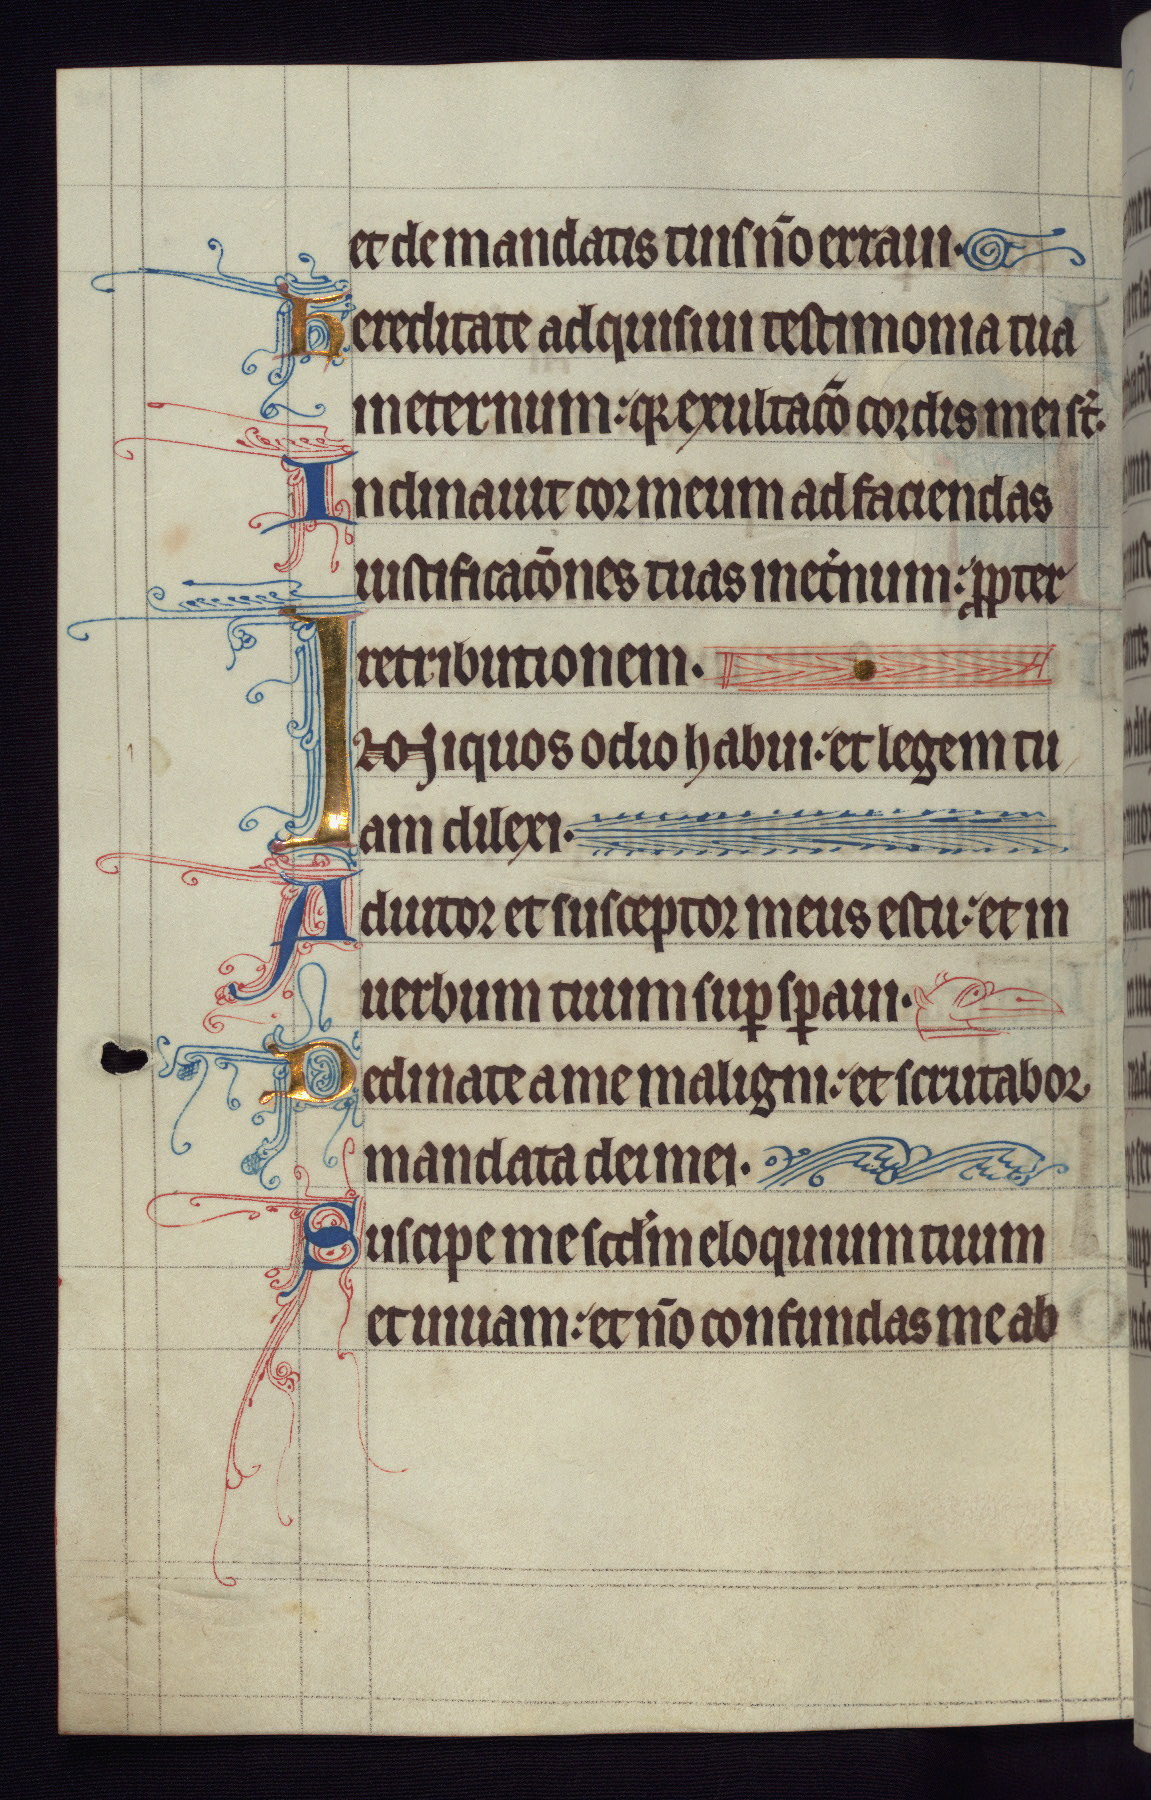 et de mandatis tuis nõ erraui.
Hereditate adquisiui testimonia tua
ineternum: qꝛ exultacõ cordis mei st̃.
Inclinauit cor meum ad faciendas
iustificacõnes tuas inet̃num: ꝓpter
retributionem.
Iniquos odio habui: et legem tu
am dilexi.
Adiutor et susceptor meus es tu: et in
uerbum tuum suꝑ sꝑaui.
Declinate a me maligni: et scrutabor
mandata dei mei.
Suscipe me scd̃m eloquium tuum
et uiuam: et nõ confundas me ab